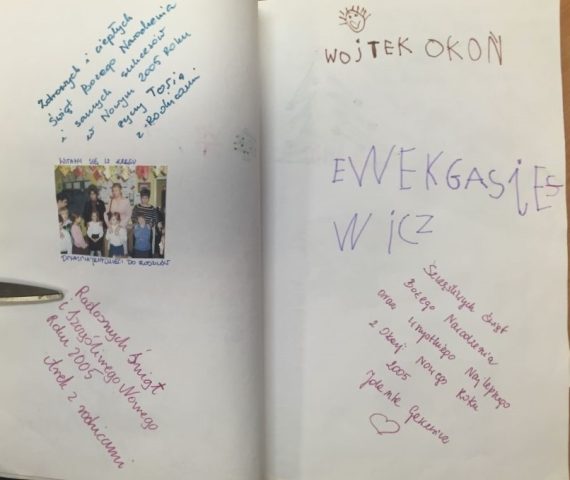 Zdrowych i ciepłych
Świąt Bożego Narodzenia
i samych sukcesów
w Nowym 2005 Roku
życzy Tosia
z Rodzicami
WITAMY SIĘ W KRĘGU
DO RODZICÓW
Radosnych Świąt
i Szczęśliwego Nowego
Roku 2005
Arek z rodzicami
WOJTEK OKOŃ
EWEKGASIES
WICZ
Szczęśliwych Świąt
Bożego Narodzenia
oraz wszystkiego Najlepszego
z Okazji Nowego Roku
2005